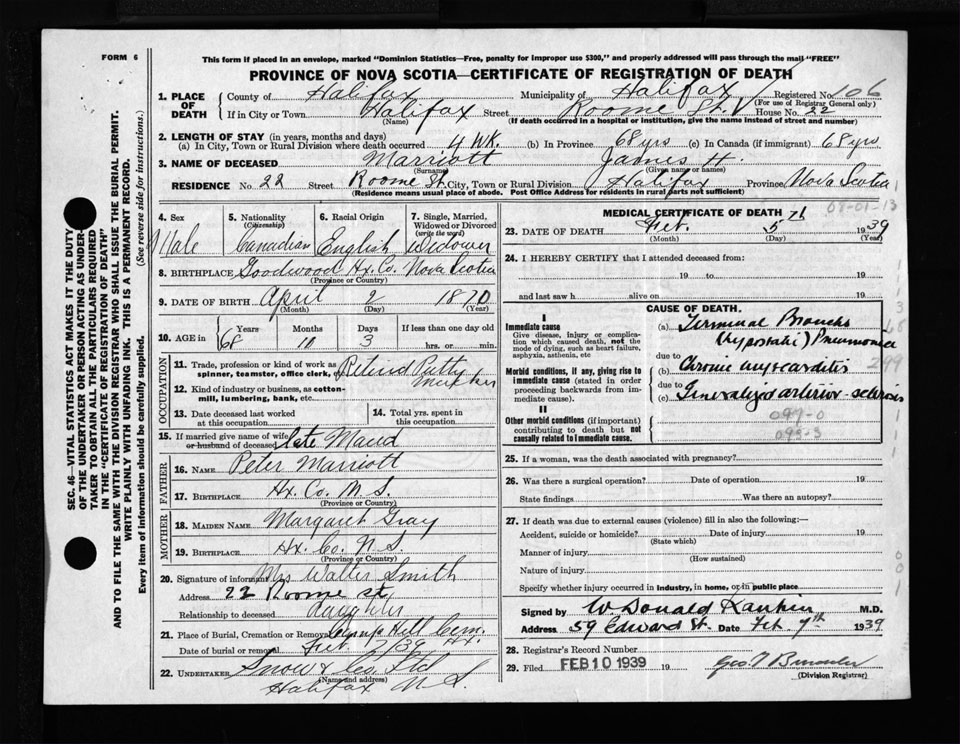 FORM 6
This form if placed in an envelope, marked "Dominion Statistics—Free, penalty for improper use $300," and properly addressed will pass through the mail "FREE"
PROVINCE OF NOVA SCOTIA—CERTIFICATE OF REGISTRATION OF DEATH
1. PLACE OF DEATH County of Halifax Municipality of Halifax Registered No. 106
(For use of Registrar General only)
If in City or Town Halifax Street Roome St. House No. 22
(Name) (If death occurred in a hospital or institution, give the name instead of street and number)
2. LENGTH OF STAY (in years, months and days)
(a) In City, Town or Rural Division where death occurred 4 WK. (b) In Province 68 yrs (c) In Canada (if immigrant) 68 yrs
3. NAME OF DECEASED Marriott James H.
(Surname) (Given name or names)
RESIDENCE No. 22 Street Roome St. City, Town or Rural Division Halifax Province Nova Scotia
(Residence means usual place of abode. Post Office Address for residents in rural parts not sufficient)
4. Sex Male
5. Nationality (Citizenship) Canadian
6. Racial Origin English
7. Single, Married, Widowed or Divorced (write the word) Widower
8. BIRTHPLACE Goodwood Hx. Co. Nova Scotia
(Province or Country)
9. DATE OF BIRTH April 2 1870
(Month) (Day) (Year)
10. AGE in Years Months Days If less than one day old
68 10 3 hrs. or min.
OCCUPATION
11. Trade, profession or kind of work as spinner, teamster, office clerk, etc. Retired Putty Maker
12. Kind of industry or business, as cotton-mill, lumbering, bank, etc.
13. Date deceased last worked at this occupation
14. Total yrs. spent in this occupation
15. If married give name of wife or husband of deceased late Maud
FATHER
16. NAME Peter Marriott
17. BIRTHPLACE Hx. Co. N.S.
(Province or Country)
MOTHER
18. MAIDEN NAME Margaret Gray
19. BIRTHPLACE Hx. Co. N.S.
(Province or Country)
20. Signature of informant Mrs Walter Smith
Address 22 Roome St.
Relationship to deceased daughter
21. Place of Burial, Cremation or Removal Camp Hill Cem. Hx.
Date of burial or removal Feb. 7/39
22. UNDERTAKER Snow & Co. Ltd
(Name and address)
Halifax N.S.
MEDICAL CERTIFICATE OF DEATH
23. DATE OF DEATH Feb. 5th 1939
(Month) (Day) (Year)
24. I HEREBY CERTIFY that I attended deceased from:
19 to 19
and last saw h alive on 19
CAUSE OF DEATH.
I
Immediate cause
Give disease, injury or complication which caused death, not the mode of dying, such as heart failure, asphyxia, asthenia, etc
(a) Terminal Broncho (hypostatic) Pneumonia
due to
Morbid conditions, if any, giving rise to immediate cause (stated in order proceeding backwards from immediate cause).
(b) Chronic myocarditis
due to
(c) Generalized arterio-sclerosis
II
Other morbid conditions (if important) contributing to death but not causally related to immediate cause.
099-0
099-3
25. If a woman, was the death associated with pregnancy?
26. Was there a surgical operation? Date of operation 19
State findings Was there an autopsy?
27. If death was due to external causes (violence) fill in also the following:—
Accident, suicide or homicide? Date of injury 19
(State which)
Manner of injury
(How sustained)
Nature of injury
Specify whether injury occurred in industry, in home, or in public place
Signed by W. Donald Rankin M.D.
Address 59 Edward St. Date Feb. 7th 1939
28. Registrar's Record Number
29. Filed FEB 10 1939 19
(Division Registrar)
SEC. 46—VITAL STATISTICS ACT MAKES IT THE DUTY OF THE UNDERTAKER OR PERSON ACTING AS UNDERTAKER TO OBTAIN ALL THE PARTICULARS REQUIRED IN THE "CERTIFICATE OF REGISTRATION OF DEATH"
AND TO FILE THE SAME WITH THE DIVISION REGISTRAR WHO SHALL ISSUE THE BURIAL PERMIT.
WRITE PLAINLY WITH UNFADING INK. THIS IS A PERMANENT RECORD.
Every item of information should be carefully supplied. (See reverse side for instructions.)